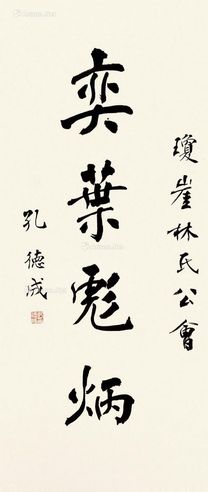 瓊崖林氏公會
奕葉彪炳
孔德成